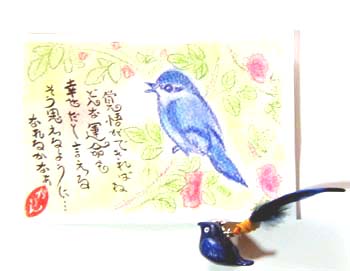 覚悟ができれば
どんな運命も
幸せだと言える
そう思えるように…
なれるかなぁ